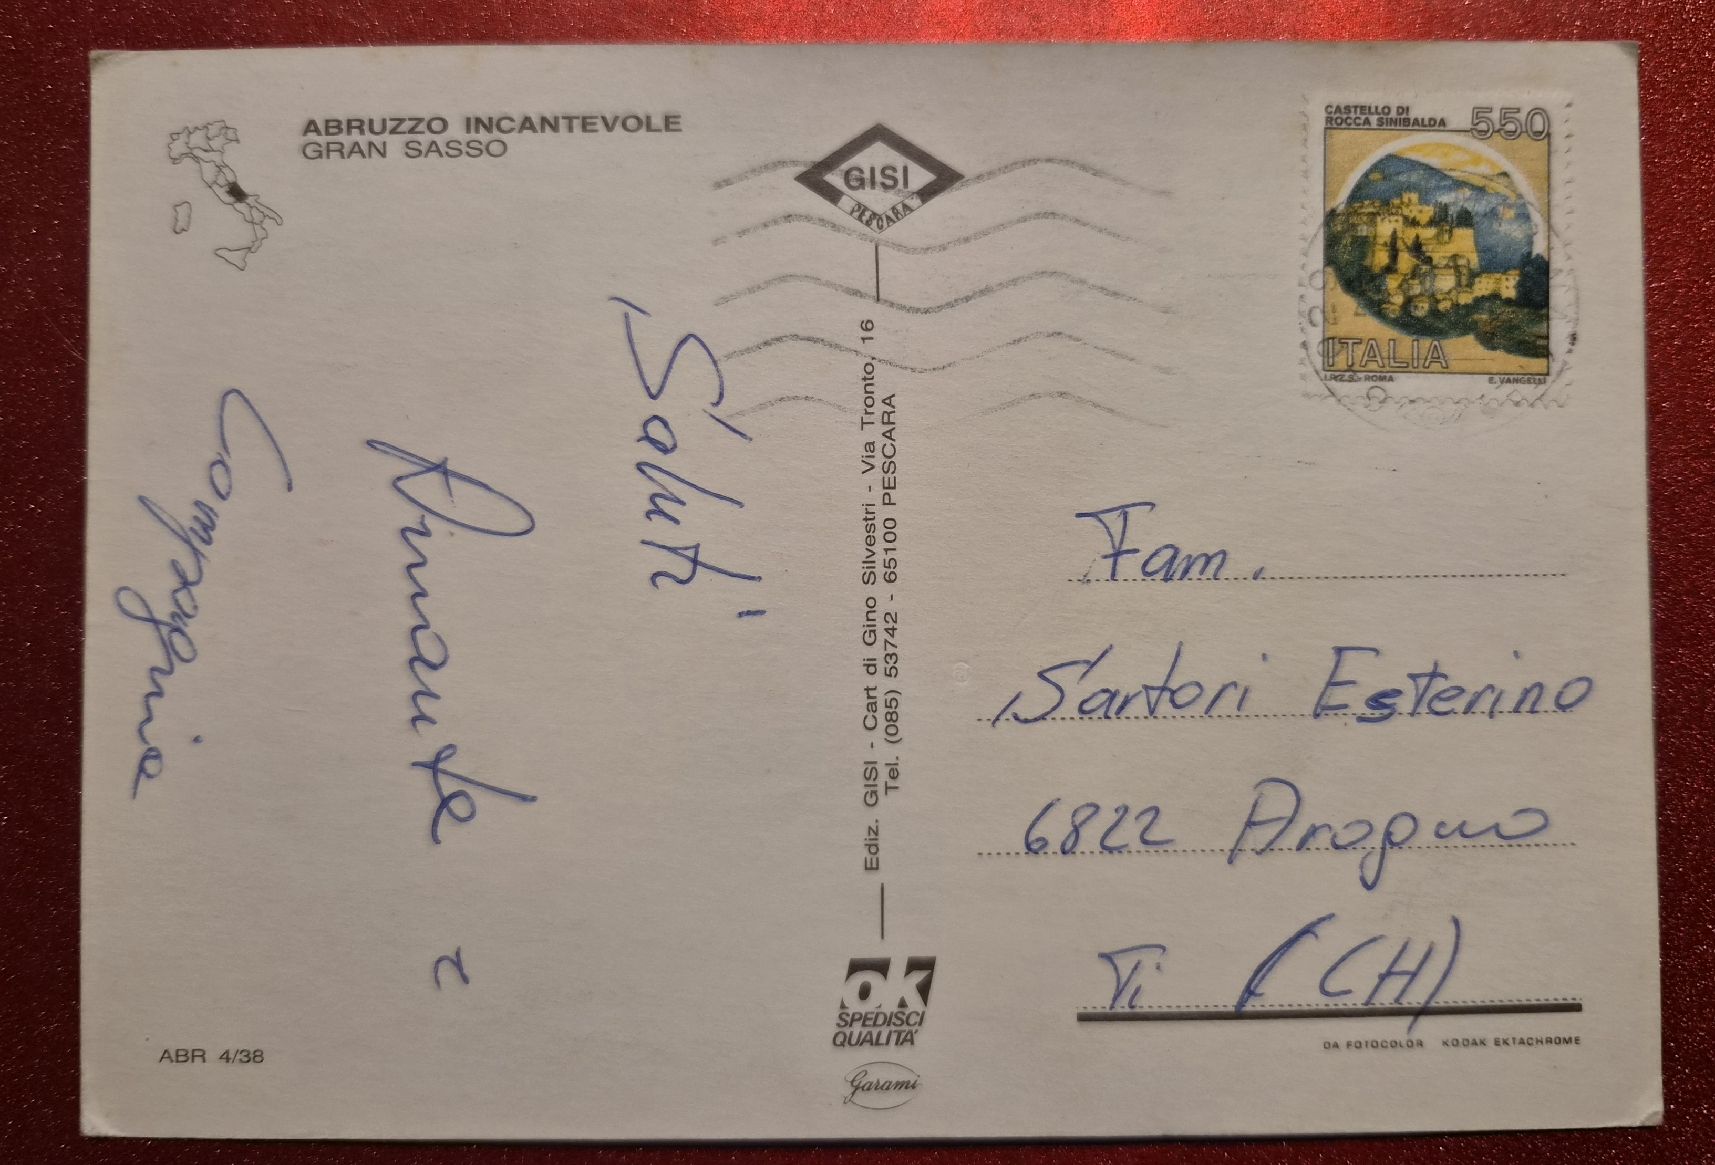 ABRUZZO INCANTEVOLE
GRAN SASSO
GISI
PESCARA
CASTELLO DI
ROCCA SINIBALDA
550
ITALIA
I.P.Z.S. - ROMA
E. VANGELLI
Saluti
e
Compagnia
Ediz. GISI - Cart di Gino Silvestri - Via Tronto, 16
Tel. (085) 53742 - 65100 PESCARA
Fam.
Sartori Esterino
6822 Arogno
Ti (CH)
ok
SPEDISCI
QUALITA'
Garami
ABR 4/38
DA FOTOCOLOR KODAK EKTACHROME